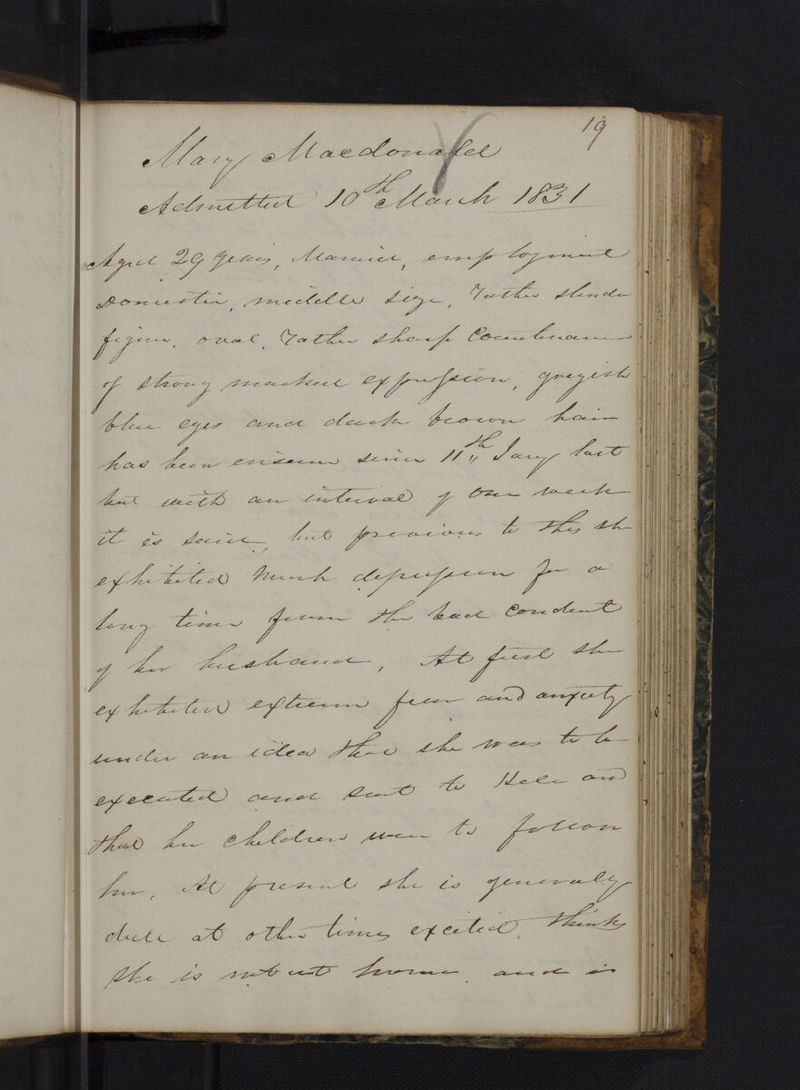 19
Mary Macdonald
Admitted 10th March 1831
Aged 29 years, Married, employment
Domestic, middle size, rather slender
figure, oval, rather sharp Countenance
of strong marked expression, greyish
blue eyes and dark brown hair
has been insane since 11th Jany last
but with an interval of one week
it is said, but previous to this she
exhibited much depression for a
long time from the bad conduct
of her husband, At first she
exhibited extreme fear and anxiety
under an idea that she was to be
executed and sent to Hell and
that her children were to follow
her, At present she is generally
dull at other times excited, thinks
she is not at home and is